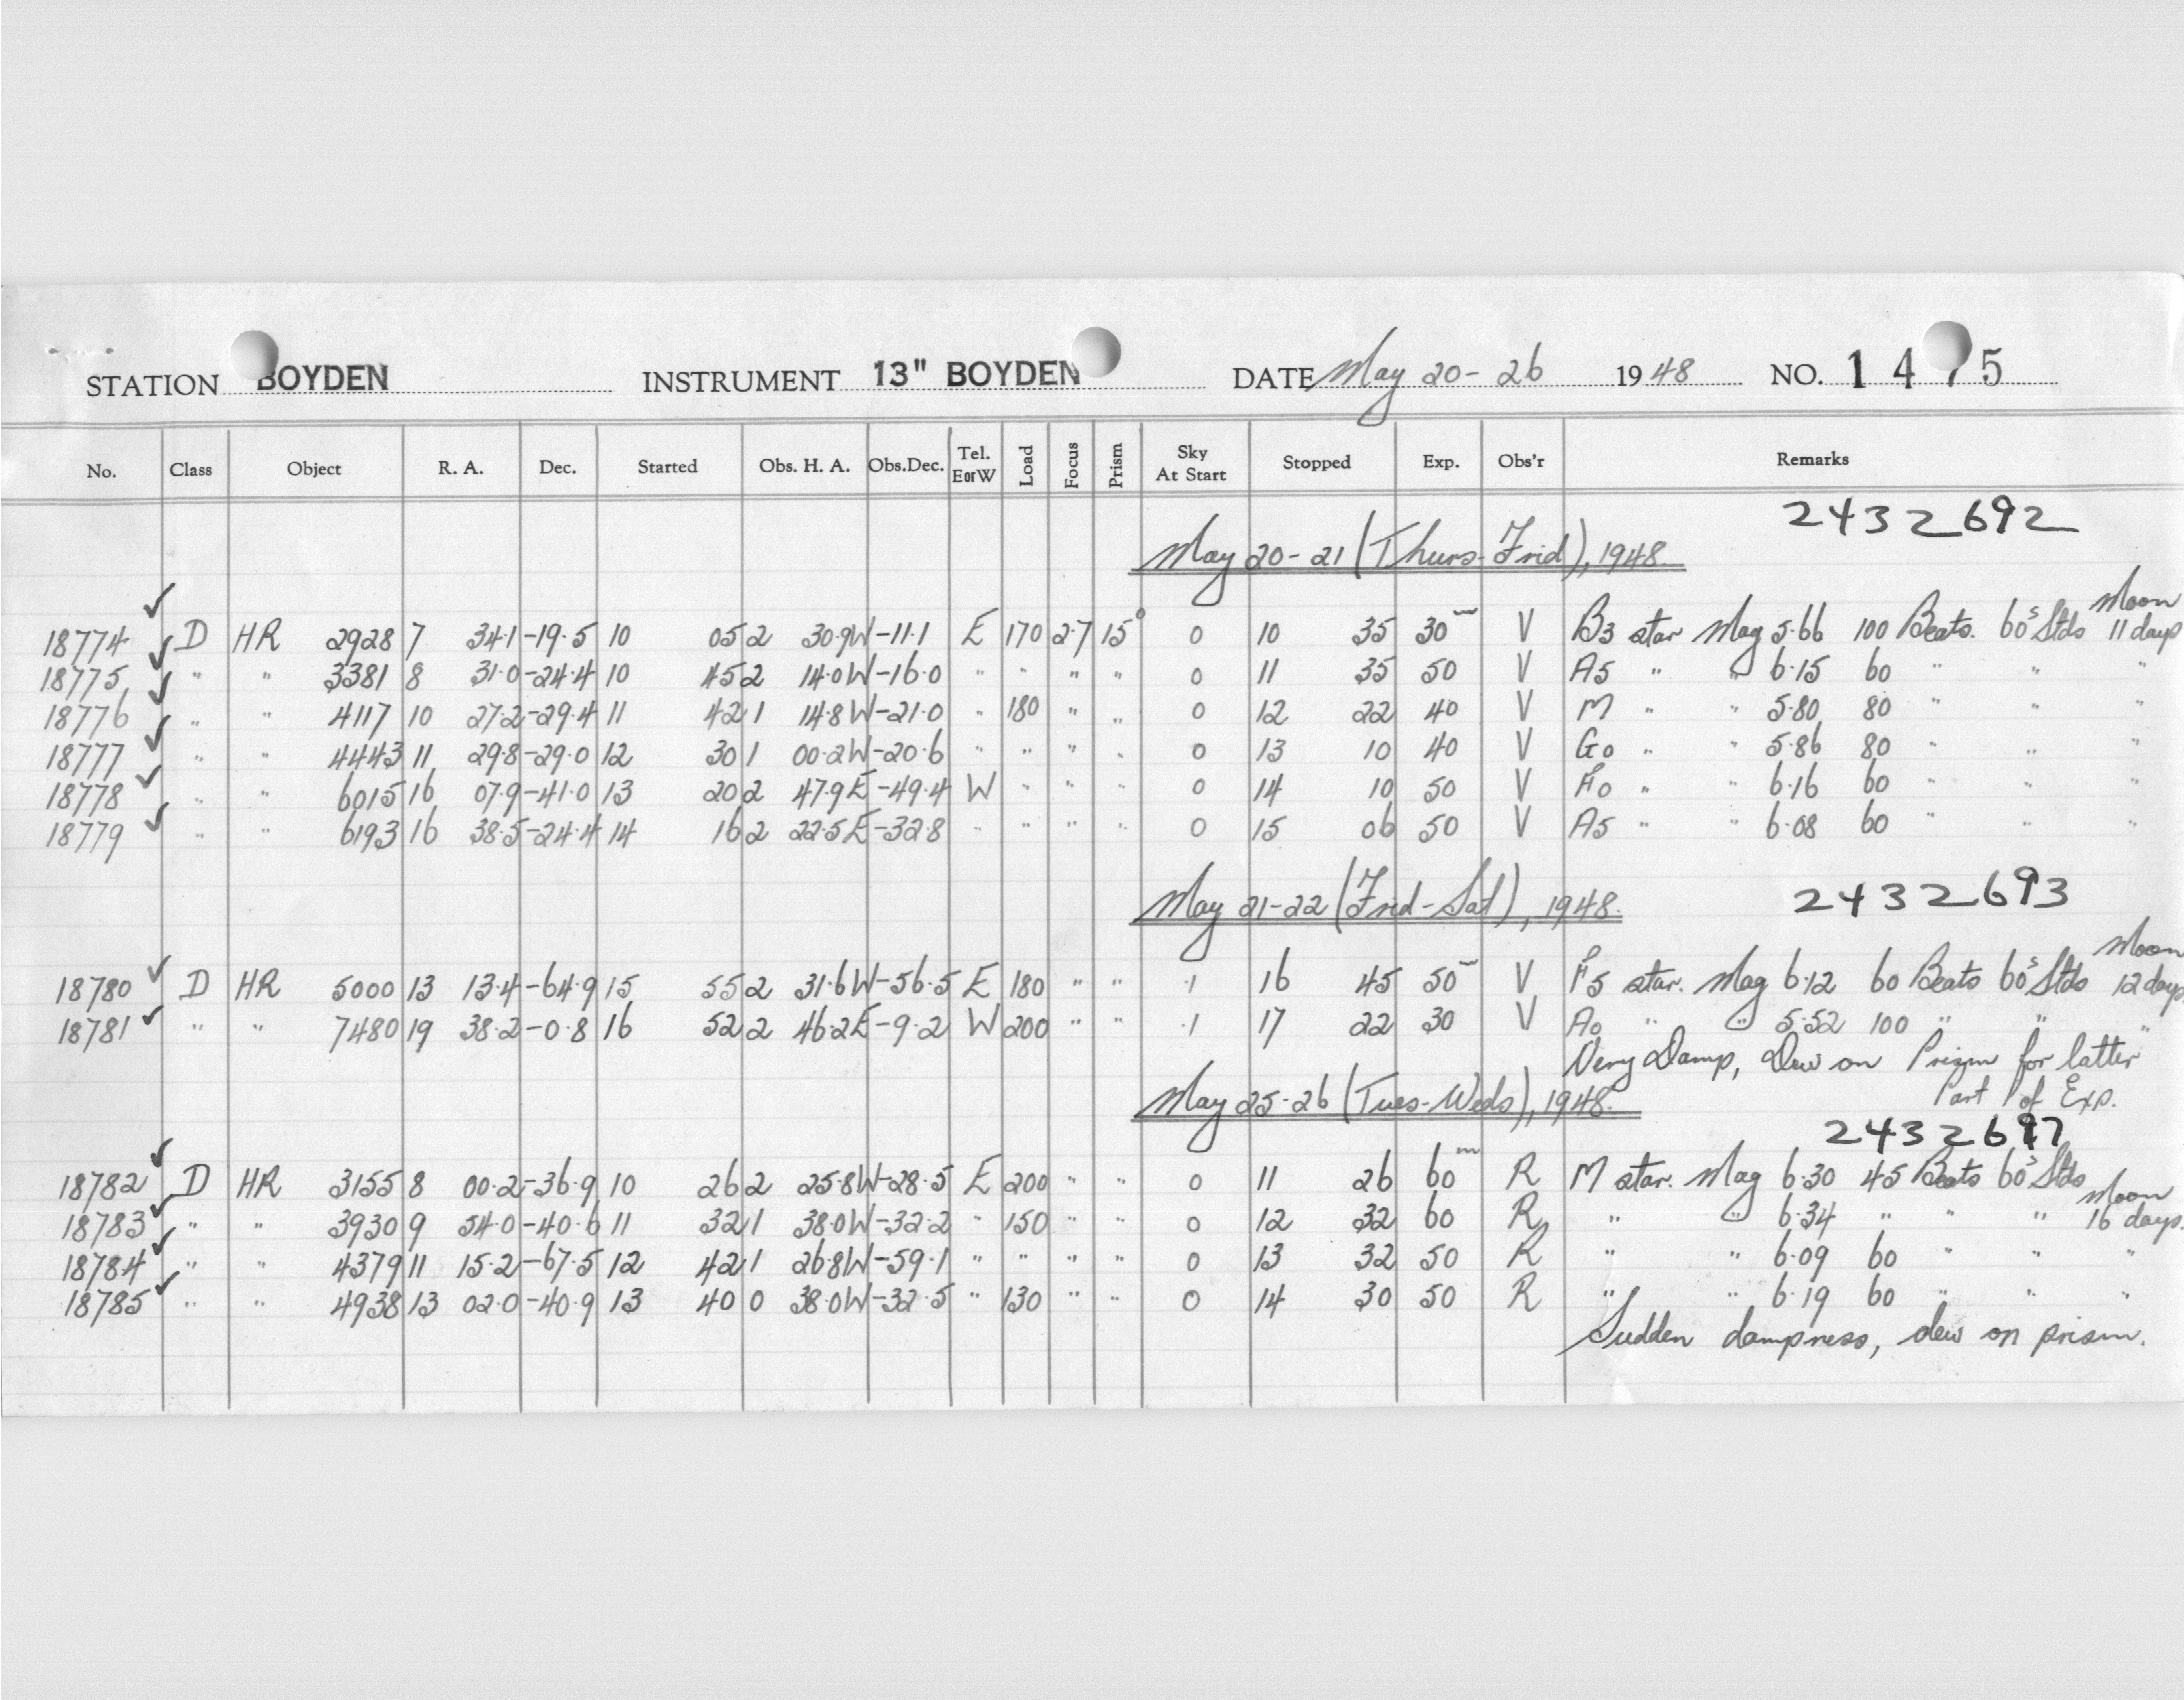 STATION BOYDEN INSTRUMENT 13" BOYDEN DATE May 20-26 1948 NO. 1475
No. Class Object R. A. Dec. Started Obs. H. A. Obs.Dec. Tel. EorW Load Focus Prism Sky At Start Stopped Exp. Obs'r Remarks
2432692
May 20-21 (Thurs-Frid), 1948.
18774 ✓ D HR 2928 7 34.1 -19.5 10 05 2 30.9W -11.1 E 170 2.7 15° 0 10 35 30m V B3 star Mag 5.66 100 Beats. 60s Stds Moon 11 days
18775 ✓ " " 3381 8 31.0 -24.4 10 45 2 14.0W -16.0 " " " " 0 11 35 50 V A5 " " 6.15 60 " " "
18776 ✓ " " 4117 10 27.2 -29.4 11 42 1 14.8W -21.0 " 180 " " 0 12 22 40 V M " " 5.80 80 " " "
18777 ✓ " " 4443 11 29.8 -29.0 12 30 1 00.2W -20.6 " " " " 0 13 10 40 V G0 " " 5.86 80 " " "
18778 ✓ " " 6015 16 07.9 -41.0 13 20 2 47.9E -49.4 W " " " 0 14 10 50 V F0 " " 6.16 60 " " "
18779 ✓ " " 6193 16 38.5 -24.4 14 16 2 22.5E -32.8 " " " " 0 15 06 50 V A5 " " 6.08 60 " " "
May 21-22 (Frid-Sat), 1948. 2432693
18780 ✓ D HR 5000 13 13.4 -64.9 15 55 2 31.6W -56.5 E 180 " " .1 16 45 50m V F5 star. Mag 6.12 60 Beats 60s Stds Moon 12 days
18781 ✓ " " 7480 19 38.2 -0.8 16 52 2 46.2E -9.2 W 200 " " .1 17 22 30 V A0 " " 5.52 100 " " "
Very Damp, Dew on Prism for latter
Part of Exp.
May 25-26 (Tues-Weds), 1948.
2432697
18782 ✓ D HR 3155 8 00.2 -36.9 10 26 2 25.8W -28.5 E 200 " " 0 11 26 60m R M star. Mag 6.30 45 Beats 60s Stds Moon
18783 ✓ " " 3930 9 54.0 -40.6 11 32 1 38.0W -32.2 " 150 " " 0 12 32 60 R " " 6.34 " " " 16 days.
18784 ✓ " " 4379 11 15.2 -67.5 12 42 1 26.8W -59.1 " " " " 0 13 32 50 R " " 6.09 60 " " "
18785 ✓ " " 4938 13 02.0 -40.9 13 40 0 38.0W -32.5 " 130 " " 0 14 30 50 R " " 6.19 60 " " "
Sudden dampness, dew on prism.